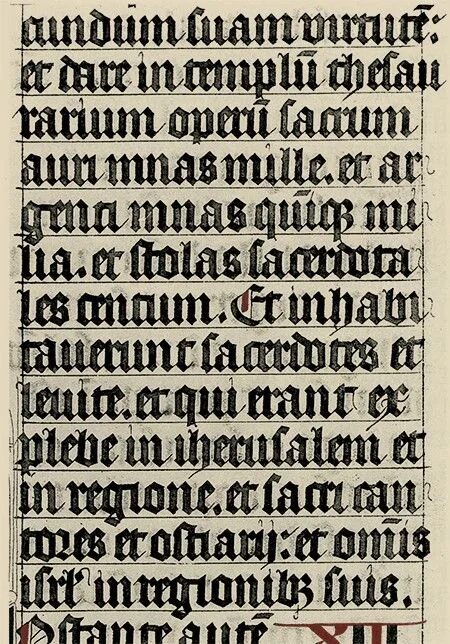 cundūm suam virtutē:
et dare in templū thesau
rarium operū sacrum
auri mnas mille. et ar
genti mnas quīqꝫ mi
lia. et stolas sacerdota
les centum. Et inhabi
taverunt sacerdotes et
levite. et qui erant ex
plebe in iherusalem et
in regione. et sacri can
tores et ostiarij: et om̄is
isrl' in regionibꝫ suis.
Instante autē XIII